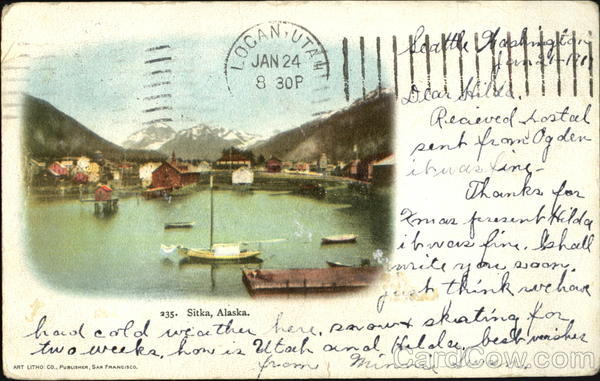 LOGAN, UTAH
JAN 24
8 30P
Seattle Washington
Jan 21-
Dear Hilda.
Recieved postal
sent from Ogden
it was fine-
Thanks for
Xmas present Hilda
it was fine. I shall
write you soon.
just think we have
235. Sitka, Alaska.
had cold weather here, snow & skating for
two weeks, how is Utah and Hilda, best wishes
from Minnie
ART LITHO. CO., PUBLISHER, SAN FRANCISCO.
CardCow.com